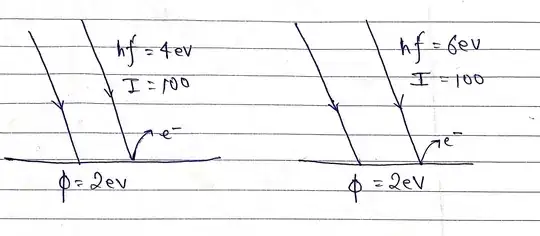 hf = 4ev
I = 100
e⁻
ϕ = 2ev
hf = 6ev
I = 100
e⁻
ϕ = 2eV